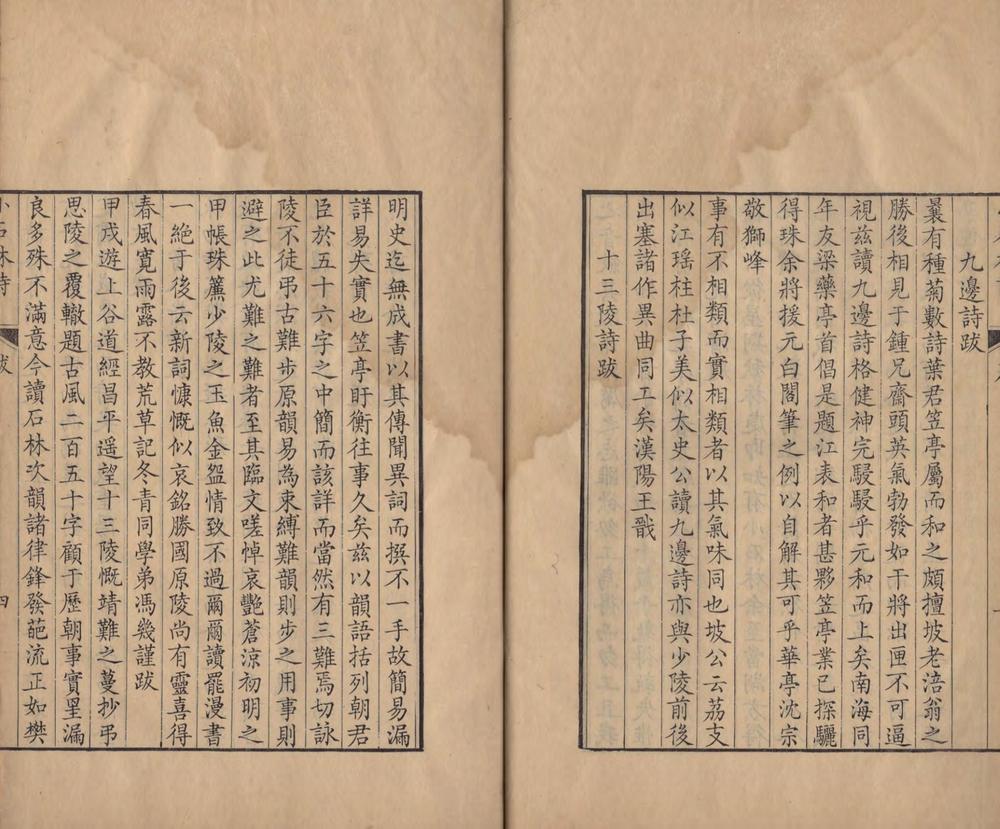 九邊詩跋
曩有種菊數詩葉君笠亭屬而和之頗擅坡老涪翁之
勝後相見于鍾兄齋頭英氣勃發如干將出匣不可逼
視茲讀九邊詩格健神完駸駸乎元和而上矣南海同
年友梁藥亭首倡是題江表和者甚夥笠亭業已探驪
得珠余將援元白閣筆之例以自解其可乎華亭沈宗
敬獅峰
事有不相類而實相類者以其氣味同也坡公云荔支
似江瑤柱杜子美似太史公讀九邊詩亦與少陵前後
出塞諸作異曲同工矣漢陽王戩
十三陵詩跋
明史迄無成書以其傳聞異詞而撰不一手故簡易漏
詳易失實也笠亭盱衡往事久矣茲以韻語括列朝君
臣於五十六字之中簡而該詳而當然有三難焉切詠
陵不徒弔古難步原韻易為束縛難韻則步之用事則
避之此尤難之難者至其臨文嗟悼哀艷蒼涼初明之
甲帳珠簾少陵之玉魚金盌情致不過爾爾讀罷漫書
一絕于後云新詞慷慨似哀銘勝國原陵尚有靈喜得
春風寬雨露不教荒草記冬青同學弟馮幾謹跋
甲戌遊上谷道經昌平遥望十三陵慨靖難之蔓抄弔
思陵之覆轍題古風二百五十字顧于歷朝事實罣漏
良多殊不滿意今讀石林次韻諸律鋒發葩流正如樊
小石林詩
跋
四